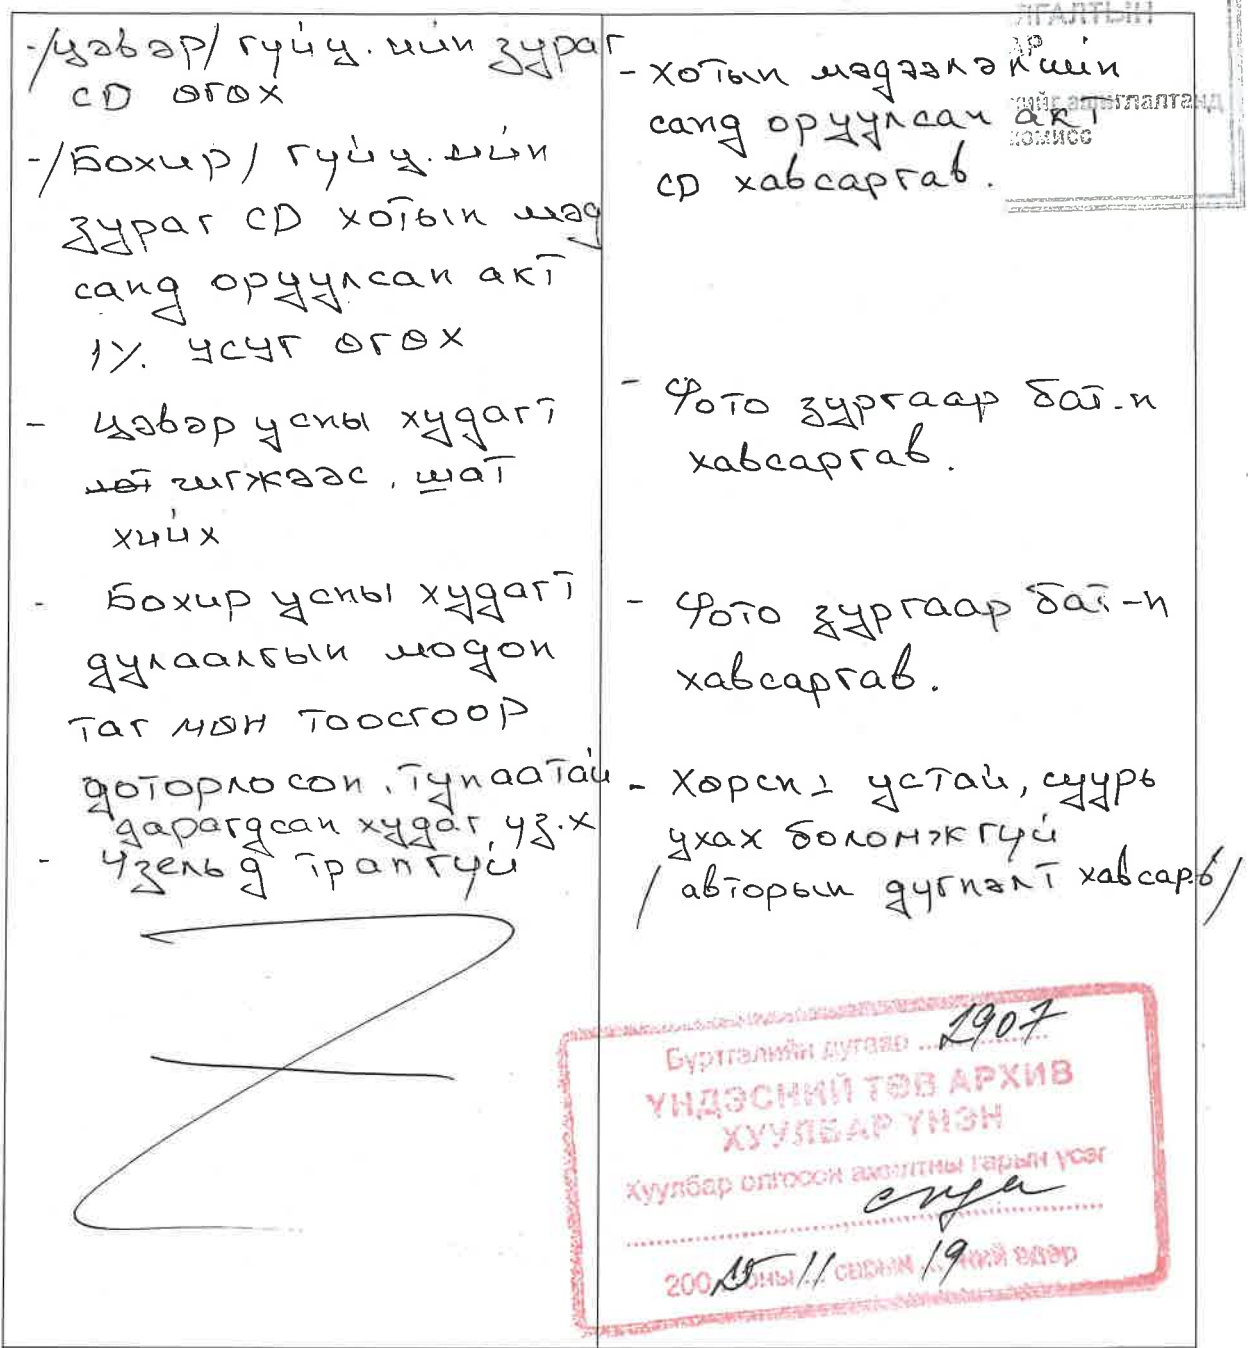 -/цэвэр/ гүйц. ийн зураг
CD өгөх
-/Бохир/ гүйц. ийн
зураг CD хотын мэд
санд оруулсан акт
1% усуг өгөх
- Цэвэр усны худагт
чигжээс, шат
хийх
- Бохир усны худагт
дулаалгын модон
таг мөн тоосгоор
доторлосон, тунаатай
дарагдсан худаг үз.х
- Узельд трапгүй
ЛГАЛТЫН
АР
ийг ашиглалтанд
комисс
- хотын мэдээлэлийн
санд оруулсан акт
CD хавсаргав.
- Фото зургаар бат-н
хавсаргав.
- Фото зургаар бат-н
хавсаргав.
- Хөрсн устай, суурь
ухах боломжгүй
/ авторын дүгнэлт хавсар.в/
Бүртгэлийн дугаар 2907
ҮНДЭСНИЙ ТӨВ АРХИВ
ХУУЛБАР ҮНЭН
Хуулбар олгосон ажилтны гарын үсэг
200 15 оны 11 сарын 19 ний өдөр